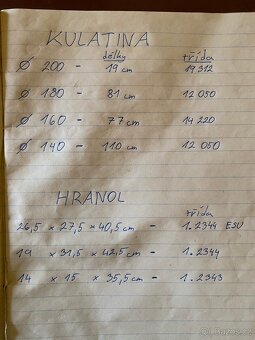 KULATINA
délky třída
Ø 200 - 19 cm 19 312
Ø 180 - 81 cm 12 050
Ø 160 - 77 cm 14 220
Ø 140 - 110 cm 12 050
HRANOL
třída
26,5 x 27,5 x 40,5 cm - 1.2344 ESU
19 x 31,5 x 42,5 cm - 1.2344
14 x 15 x 35,5 cm - 1.2343